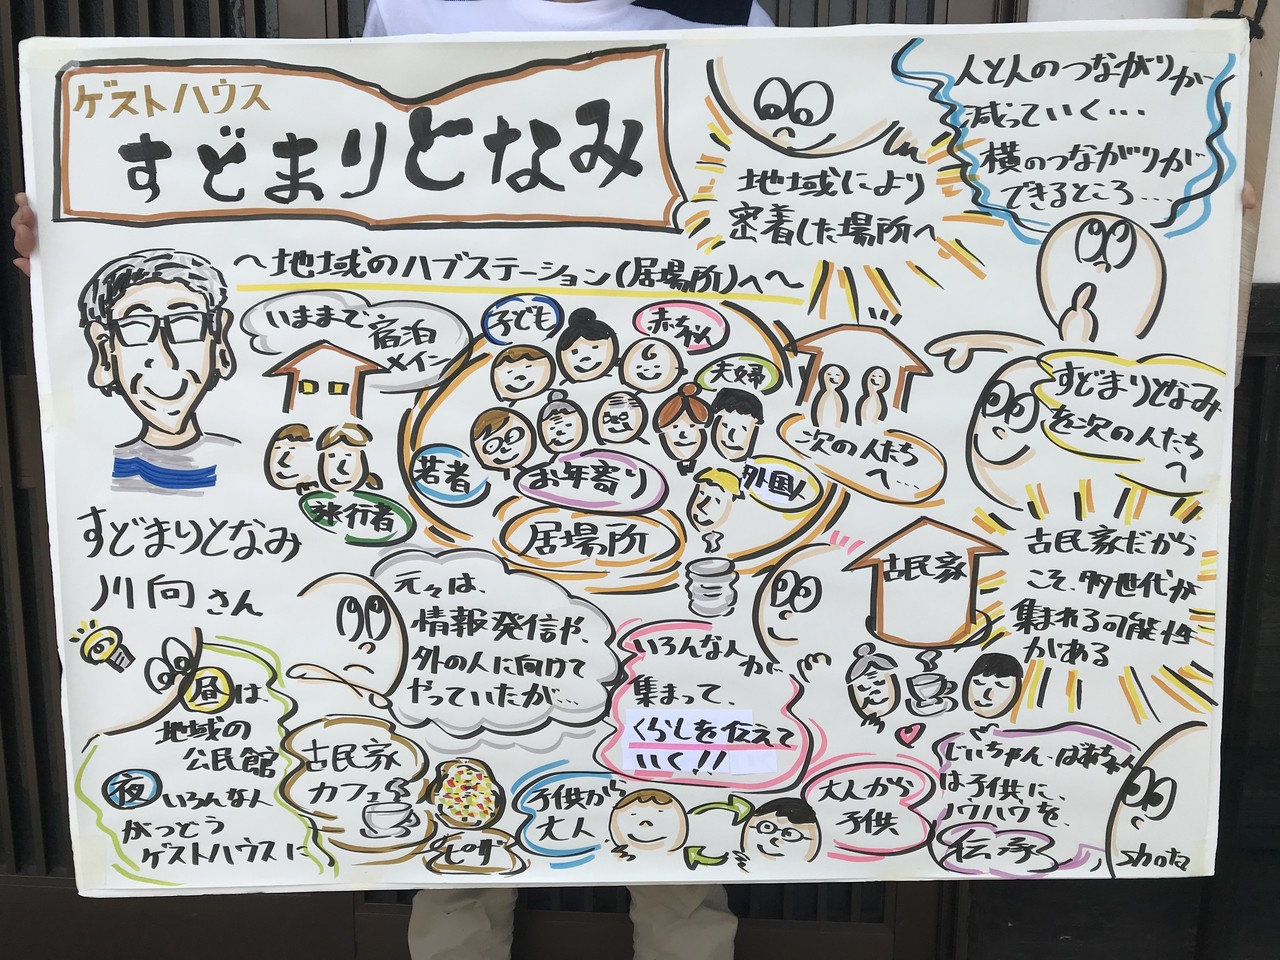 ゲストハウス
すどまりとなみ
〜地域のハブステーション(居場所)へ〜
地域により
密着した場所へ
人と人のつながりが
減っていく・・・
横のつながりが
できるところ・・・
いままで
宿泊
メイン
旅行者
子ども
赤ちゃん
夫婦
若者
お年寄り
外国人
居場所
次の人たち
へ・・・
すどまりとなみ
を次の人たち
へ
すどまりとなみ
川向さん
元々は、
情報発信や、
外の人に向けて
やっていたが・・・
いろんな人が
集まって、
くらしを伝えて
いく!!
古民家
古民家だから
こそ、多世代が
集まれる可能性
がある
昼は
地域の
公民館
夜いろんな人
がつどう
ゲストハウスに
古民家
カフェ
ピザ
子供から
大人
大人から
子供
じいちゃん・ばあちゃん
は子供に、
ノウハウを、
伝承